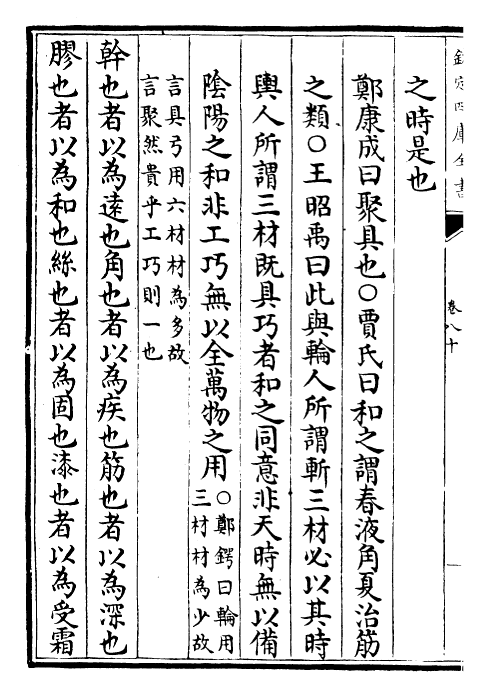 欽定四庫全書
卷八十
之時是也
鄭康成曰聚具也○賈氏曰和之謂春液角夏治筋
之類○王昭禹曰此與輪人所謂斬三材必以其時
輿人所謂三材既具巧者和之同意非天時無以備
陰陽之和非工巧無以全萬物之用○鄭鍔曰輪用
三材材為少故
言具弓用六材材為多故
言聚然貴乎工巧則一也
幹也者以為逺也角也者以為疾也筋也者以為深也
膠也者以為和也絲也者以為固也漆也者以為受霜